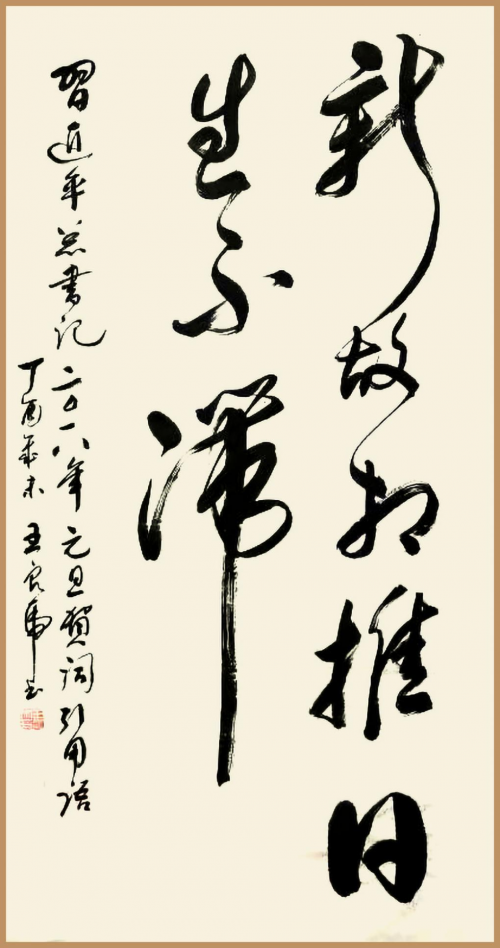 新故相推日
生不滞
習近平总書记二〇一八年元旦贺词引用语
丁酉年末 王良虎书